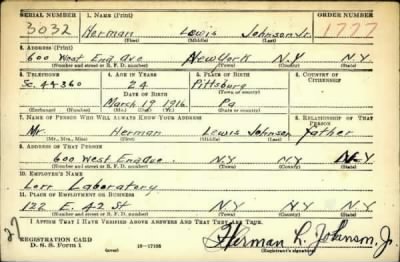 SERIAL NUMBER 1. NAME (Print) ORDER NUMBER
3032 Herman Lewis Johnson Jr. 1777
(First) (Middle) (Last)
2. ADDRESS (Print)
600 West End Ave New York N.Y N.Y
(Number and street or R. F. D. number) (Town) (County) (State)
3. TELEPHONE 4. AGE IN YEARS 5. PLACE OF BIRTH 6. COUNTRY OF CITIZENSHIP
Sc. 4-8360 24 Pittsburg
DATE OF BIRTH (Town or county)
March 19 1916 Pa
(Exchange) (Number) (Mo.) (Day) (Yr.) (State or country)
7. NAME OF PERSON WHO WILL ALWAYS KNOW YOUR ADDRESS 8. RELATIONSHIP OF THAT PERSON
Mr. Herman Lewis Johnson father
(Mr., Mrs., Miss) (First) (Middle) (Last)
9. ADDRESS OF THAT PERSON
600 West End Ave. N.Y N.Y N.Y
(Number and street or R. F. D. number) (Town) (County) (State)
10. EMPLOYER'S NAME
Lerr Laboratery
11. PLACE OF EMPLOYMENT OR BUSINESS
122 E. 42 St N.Y N.Y N.Y
(Number and street or R. F. D. number) (Town) (County) (State)
I AFFIRM THAT I HAVE VERIFIED ABOVE ANSWERS AND THAT THEY ARE TRUE.
27
REGISTRATION CARD
D. S. S. Form 1 (over) 16—17105
Herman L. Johnson, Jr.
(Registrant's signature)